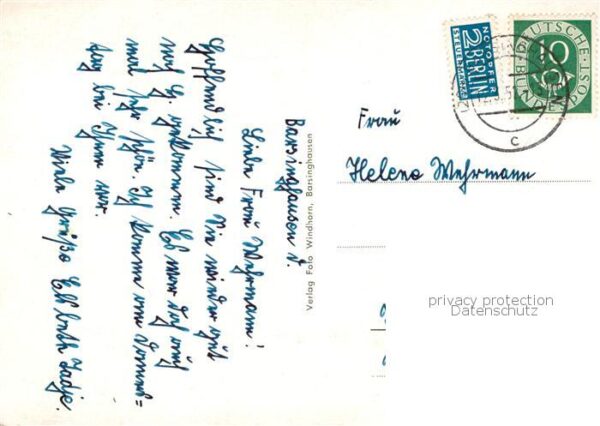 Barsinghausen d.
Liebe Frau Wehrmann!
Hoffendlich sind Sie wieder gut
nach H. gekommen. Es war doch auch
mal sehr schön. Ich komme am Donners=
tag bei Ihnen vor.
Viele Grüße Elsbeth Jadje.
Verlag Foto Windhorn, Barsinghausen
NOTOPFER
2 BERLIN
STEUERMARKE
DEUTSCHE
BUNDESPOST
10
c
Frau
Helene Wehrmann
privacy protection
Datenschutz